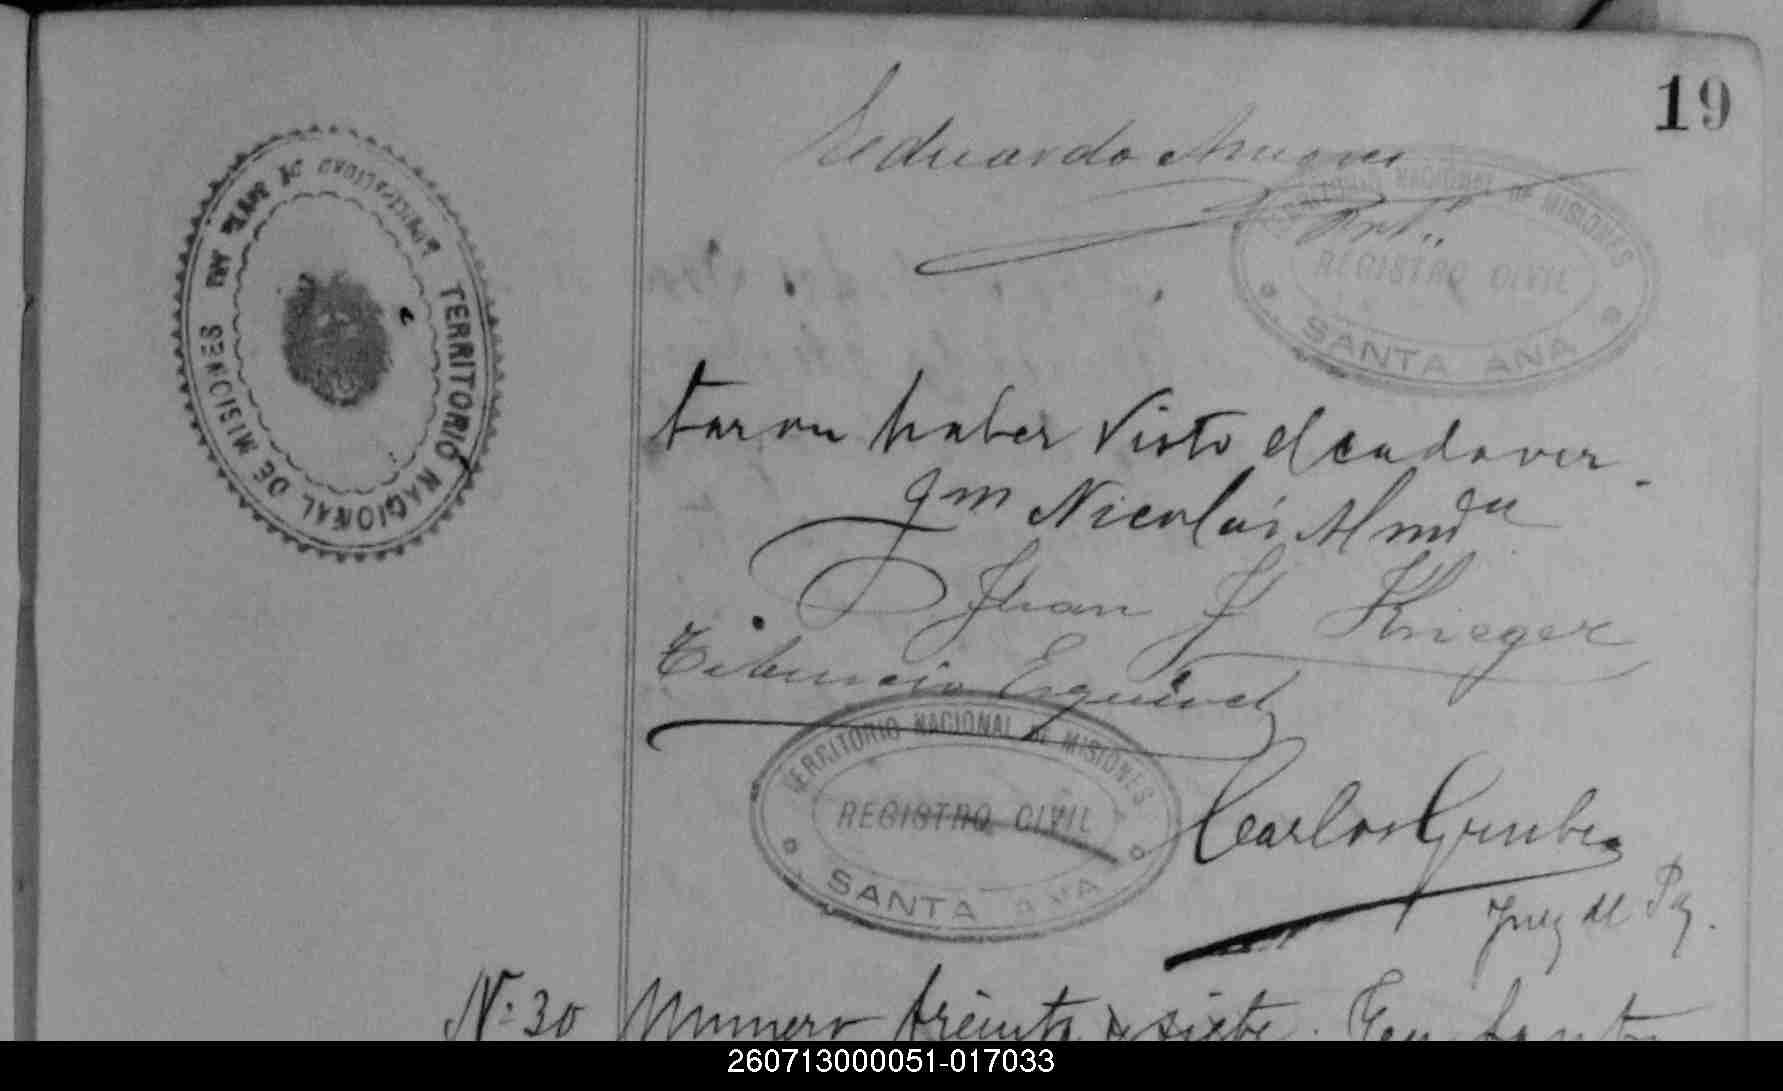 19
Eduardo
TERRITORIO NACIONAL DE MISIONES
REGISTRO CIVIL
SANTA ANA
TERRITORIO NACIONAL DE MISIONES
taron haber visto el cadaver.
Nicolás
Juan J Krieger
Tiburcio Esquivel
TERRITORIO NACIONAL DE MISIONES
REGISTRO CIVIL
SANTA ANA
Carlos
Juez de Paz.
Nº 30
Numero treinta y siete. En Santa
260713000051-017033